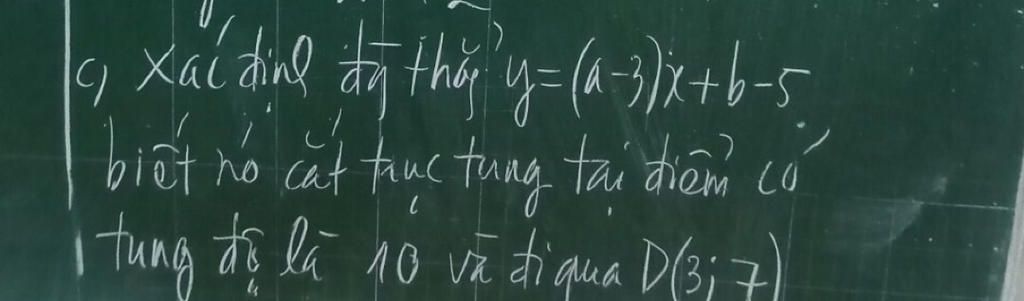 c) Xác định đg thẳng y=(a-3)x+b-5
biết nó cắt trục tung tại điểm có
tung độ là 10 và đi qua D(3;7)